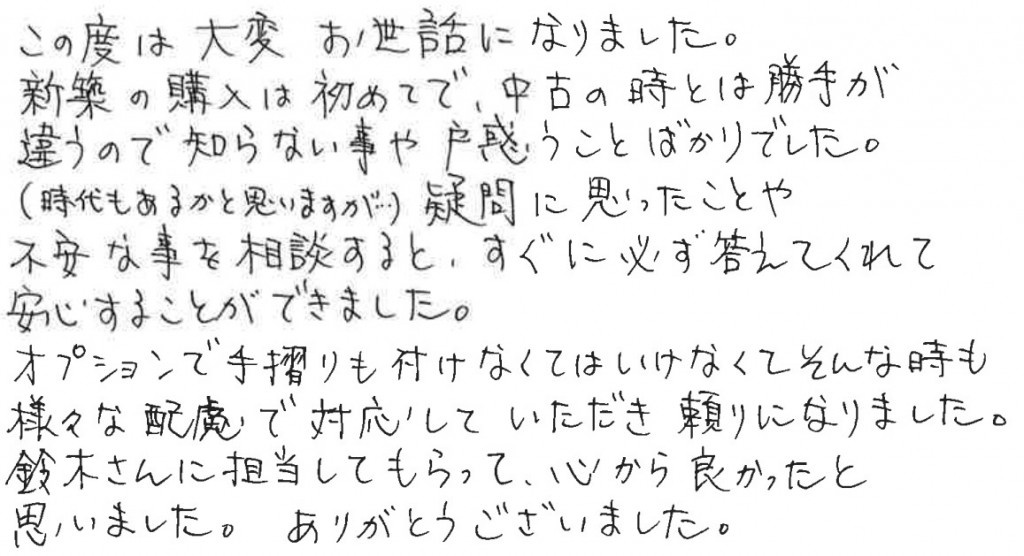 この度は大変お世話になりました。
新築の購入は初めてで、中古の時とは勝手が
違うので知らない事や戸惑うことばかりでした。
(時代もあるかと思いますが…)疑問に思ったことや
不安な事を相談すると、すぐに必ず答えてくれて
安心することができました。
オプションで手摺りも付けなくてはいけなくてそんな時も
様々な配慮で対応していただき頼りになりました。
鈴木さんに担当してもらって、心から良かったと
思いました。ありがとうございました。